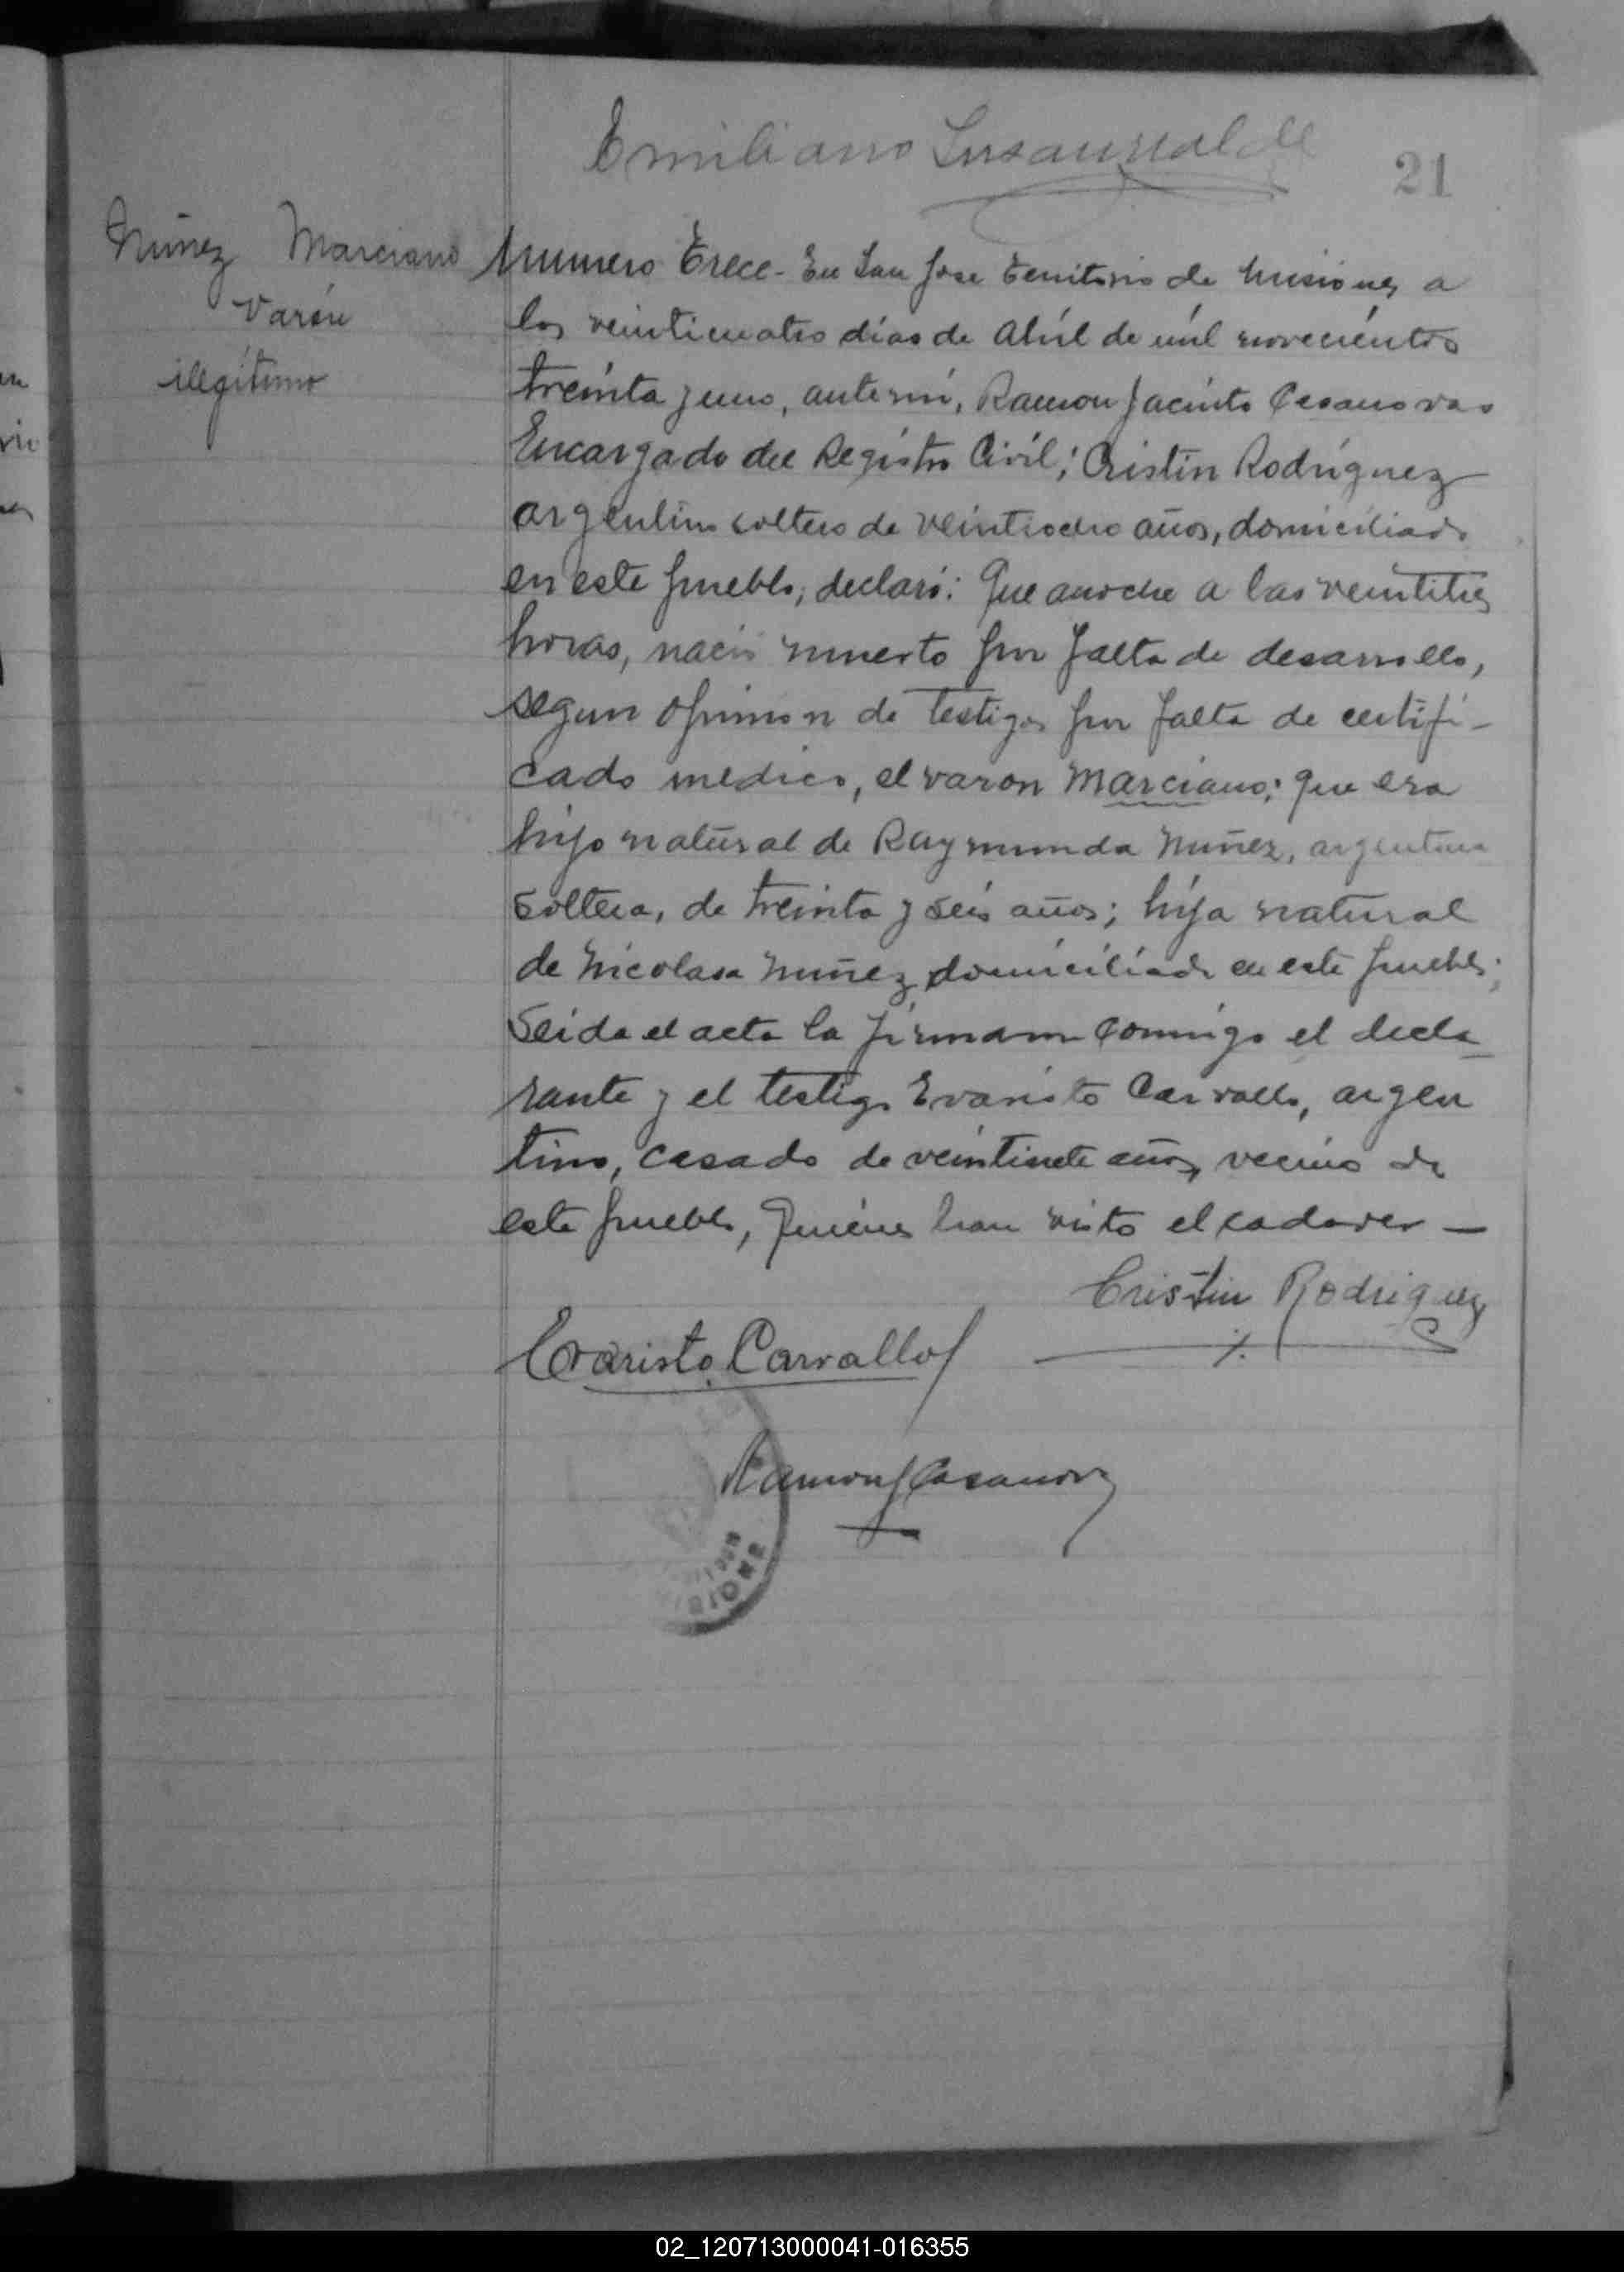 Emiliano
21
Nuñez Marciano
Varón
ilegítimo
Numero Trece - En San Jose Territorio de Misiones a
los veinticuatro días de Abril de mil novecientos
treinta y uno, ante mí, Ramon Jacinto Casanovas
Encargado del Registro Civil; Cristin Rodríguez
argentino soltero de veintiocho años, domiciliado
en este pueblo, declaró: Que anoche a las veintitres
horas, nació muerto por falta de desarrollo,
segun opinion de testigos por falta de certifi-
cado medico, el varon Marciano; que era
hijo natural de Raymunda Nuñez, argentina
soltera, de treinta y seis años; hija natural
de Nicolasa Nuñez domiciliada en este pueblo;
Leida el acta la firmaron comigo el decla-
rante y el testigo Evaristo Carvallo, argen
tino, casado de veintisiete años, vecino de
este pueblo, quienes han visto el cadaver —
Cristin Rodriguez
Evaristo Carvallo
Ramon J Casanovas
02_120713000041-016355